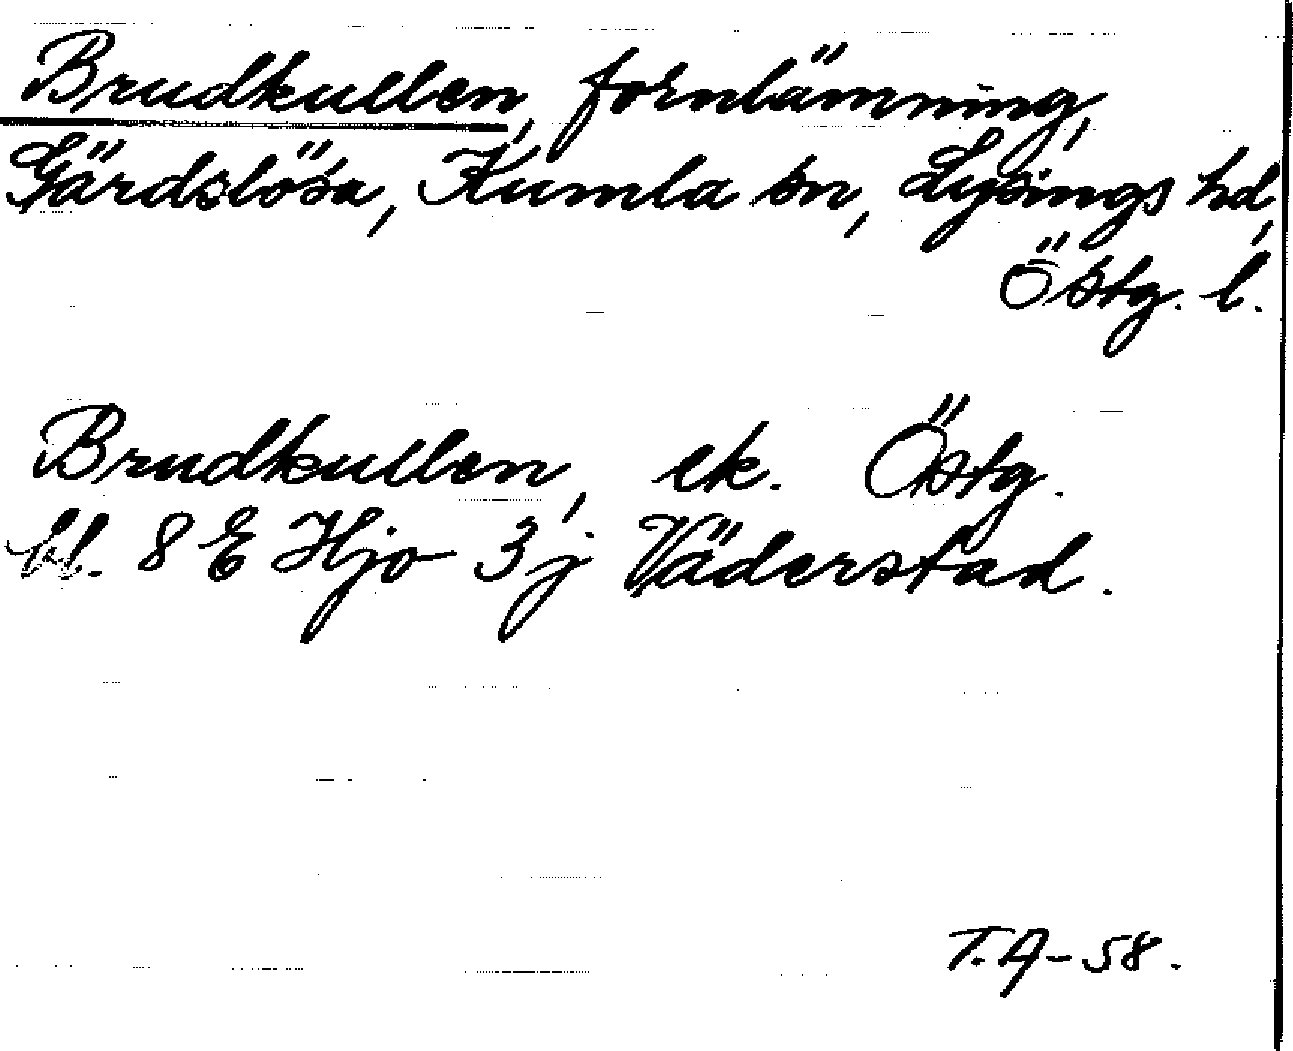 Brudkullen, fornlämning,
Gärdslösa, Kumla sn, Lysings hd,
Östg. l.
Brudkullen, ek. Östg.
bl. 8 E Hjo 3 j Väderstad.
T.A-58.